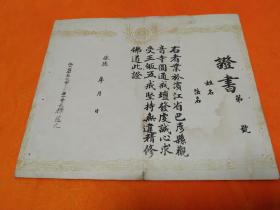 證書
第 號
姓名
法名
右者業於濱江省巴彥縣觀
音寺圓通戒壇發虔誠心求
受三皈五戒堅持無違精修
佛道此證
康德 年 月 日